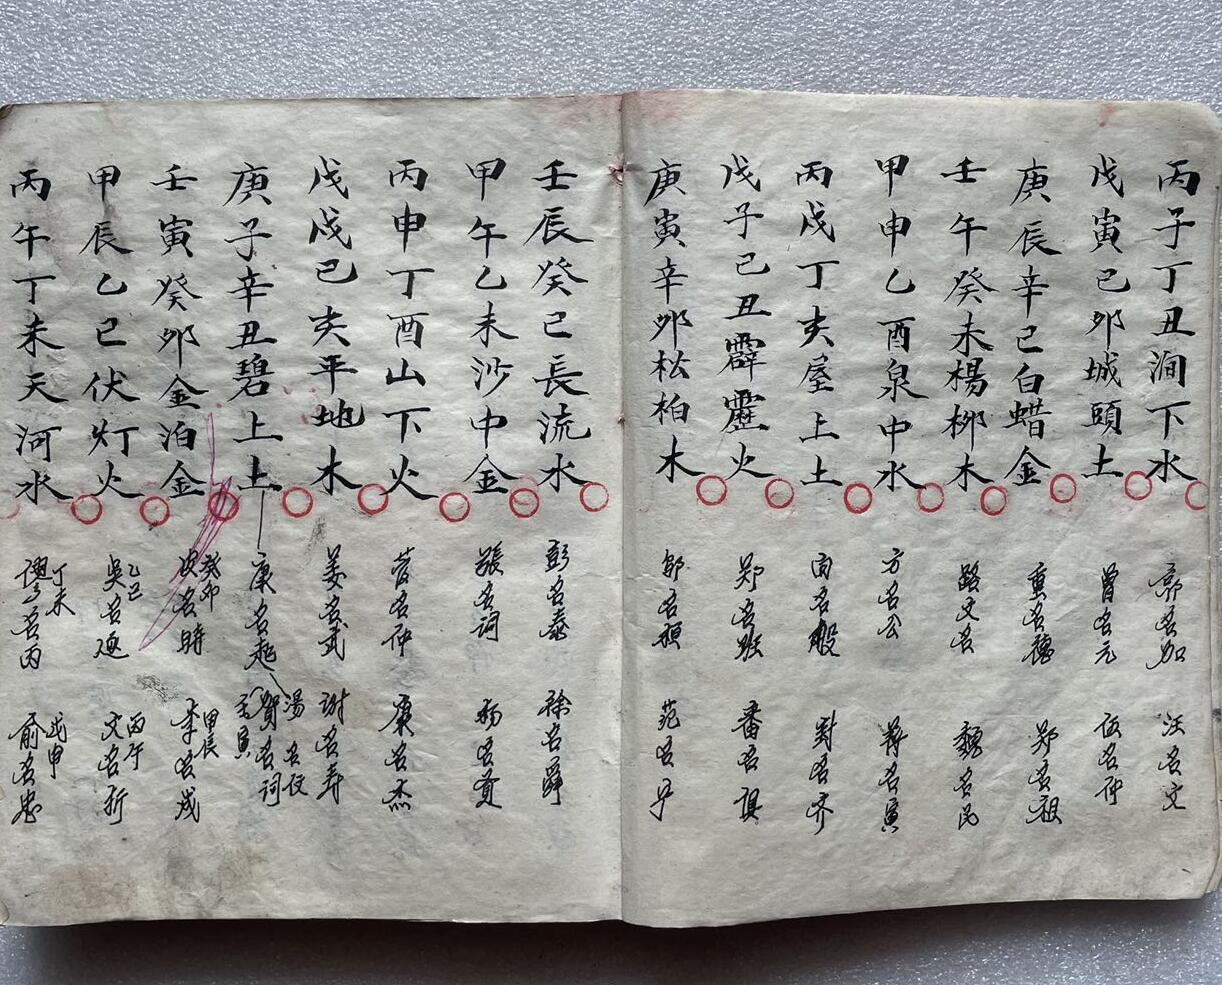 丙子丁丑澗下水
郭名加
汪名文
戊寅己卯城頭土
曾名元
伍名仲
庚辰辛巳白蜡金
重名德
郑名祖
壬午癸未楊柳木
路文名
魏名民
甲申乙酉泉中水
方名公
蒋名寅
丙戌丁亥屋上土
向名般
封名齐
戊子己丑霹靂火
郑名
番名
庚寅辛卯松柏木
邬名
范名
壬辰癸巳長流水
彭名泰
徐名舜
甲午乙未沙中金
張名词
杨名贡
丙申丁酉山下火
管名仲
康名杰
戊戌己亥平地木
姜名武
谢名寿
庚子辛丑碧上土
康名起
湯名仪
賀名词
壬寅
壬寅癸卯金泊金
癸卯
皮名時
甲辰
李名成
甲辰乙巳伏灯火
乙巳
吳名
丙午
文名折
丙午丁未天河水
丁未
名丙
戊申
俞名忠